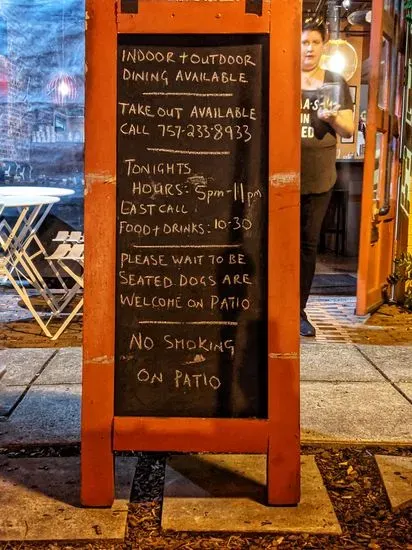 INDOOR + OUTDOOR
DINING AVAILABLE
TAKE OUT AVAILABLE
CALL 757-233-8933
TONIGHTS
HOURS: 5pm-11pm
LAST CALL
FOOD + DRINKS: 10-30
PLEASE WAIT TO BE
SEATED DOGS ARE
WELCOME ON PATIO
NO SMOKING
ON PATIO